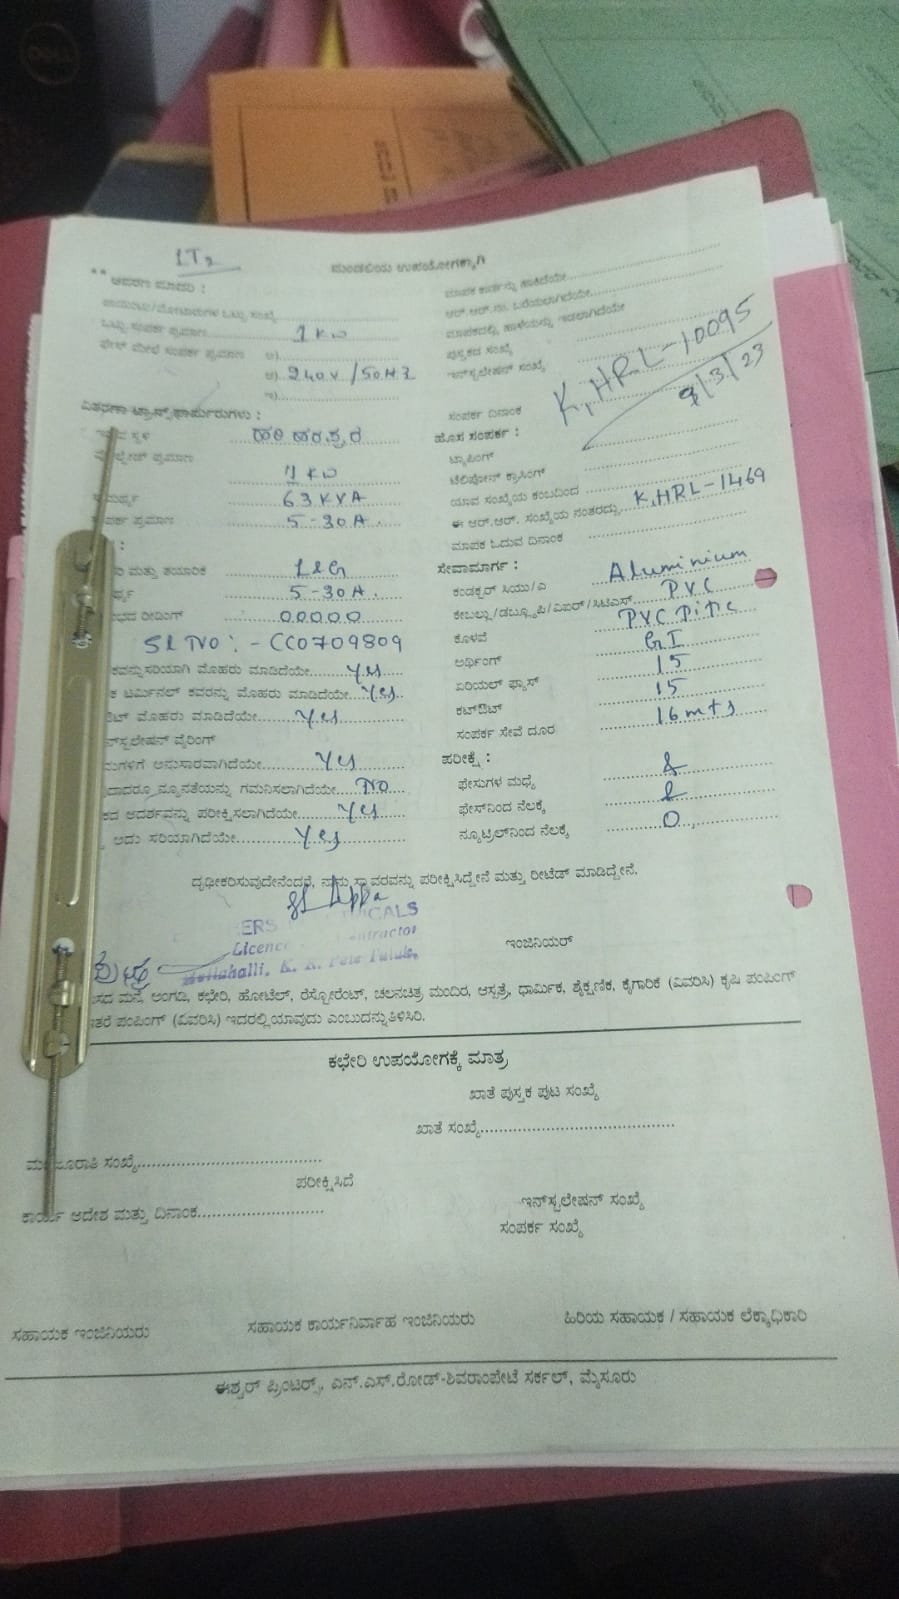 DELL
LT2
ಮಂಡಲಿಯ ಉಪಯೋಗಕ್ಕಾಗಿ
**
ಒಟ್ಟು ಸಂಪರ್ಕ ಪ್ರಮಾಣ 1 KW
ಫೇಸ್ ಮೇಲೆ ಸಂಪರ್ಕ ಪ್ರಮಾಣ ಅ)
ಆ) 240V/50HZ
ಇ)
ವಿತರಣಾ ಟ್ರಾನ್ಸ್‌ಫಾರ್ಮರುಗಳು :
ಹರಿಹರಪುರ
ಪ್ರಮಾಣ 1 KW
63 KVA
ಪ್ರಮಾಣ 5-30A.
ಮತ್ತು ತಯಾರಿಕ L&G
5-30A.
ರೀಡಿಂಗ್ 00000
SL NO:- CC0709809
ಕವನ್ನು ಸರಿಯಾಗಿ ಮೊಹರು ಮಾಡಿದೆಯೇ Yes
ಟರ್ಮಿನಲ್ ಕವರನ್ನು ಮೊಹರು ಮಾಡಿದೆಯೇ Yes
ಮೊಹರು ಮಾಡಿದೆಯೇ Yes
ವೈರಿಂಗ್
ಅನುಸಾರವಾಗಿದೆಯೇ Yes
ನ್ಯೂನತೆಯನ್ನು ಗಮನಿಸಲಾಗಿದೆಯೇ NO
ಆದರ್ಶವನ್ನು ಪರೀಕ್ಷಿಸಲಾಗಿದೆಯೇ Yes
ಅದು ಸರಿಯಾಗಿದೆಯೇ Yes
ಮಾಪಕ ಕಾರ್ಡನ್ನು ಹಾಕಿದೆಯೇ
ಆರ್.ಆರ್.ನಂ. ಬರೆಯಲಾಗಿದೆಯೇ
ಮಾಪಕದಲ್ಲಿ ಹಾಳೆಯನ್ನು ಇಡಲಾಗಿದೆಯೇ
ಪುಸ್ತಕದ ಸಂಖ್ಯೆ
ಇನ್‌ಸ್ಟಲೇಷನ್ ಸಂಖ್ಯೆ K,HRL-10095
ಸಂಪರ್ಕ ದಿನಾಂಕ 9/3/23
ಹೊಸ ಸಂಪರ್ಕ :
ಟ್ಯಾಪಿಂಗ್
ಟೆಲಿಫೋನ್ ಕ್ರಾಸಿಂಗ್
ಯಾವ ಸಂಖ್ಯೆಯ ಕಂಬದಿಂದ
ಈ ಆರ್.ಆರ್. ಸಂಖ್ಯೆಯ ನಂತರದ್ದು K,HRL-1469
ಮಾಪಕ ಓದುವ ದಿನಾಂಕ
ಸೇವಾಮಾರ್ಗ :
ಕಂಡಕ್ಟರ್ ಸಿಯು/ಎ Aluminium
ಕೇಬಲ್ಲು/ಡಬ್ಲ್ಯೂಪಿ/ಎಐಆರ್/ಸಿಟಿಎಸ್ PVC
ಕೊಳವೆ PVC Pipe
ಅರ್ಥಿಂಗ್ GI
ಏರಿಯಲ್ ಫ್ಯೂಸ್ 15
ಕಟ್‌ಔಟ್ 15
ಸಂಪರ್ಕ ಸೇವೆ ದೂರ 16mts
ಪರೀಕ್ಷೆ :
ಫೇಸುಗಳ ಮಧ್ಯೆ
ಫೇಸ್‌ನಿಂದ ನೆಲಕ್ಕೆ
ನ್ಯೂಟ್ರಲ್‌ನಿಂದ ನೆಲಕ್ಕೆ 0
ದೃಢೀಕರಿಸುವುದೇನೆಂದರೆ, ನಾನು ಸ್ಥಾವರವನ್ನು ಪರೀಕ್ಷಿಸಿದ್ದೇನೆ ಮತ್ತು ರೀಟೆಡ್ ಮಾಡಿದ್ದೇನೆ.
Mallahalli, K. R. Pete Taluk.
ಇಂಜಿನಿಯರ್
ಮನೆ, ಅಂಗಡಿ, ಕಛೇರಿ, ಹೋಟೆಲ್, ರೆಸ್ಟೋರೆಂಟ್, ಚಲನಚಿತ್ರ ಮಂದಿರ, ಆಸ್ಪತ್ರೆ, ಧಾರ್ಮಿಕ, ಶೈಕ್ಷಣಿಕ, ಕೈಗಾರಿಕೆ (ವಿವರಿಸಿ) ಕೃಷಿ ಪಂಪಿಂಗ್
ಇತರೆ ಪಂಪಿಂಗ್ (ವಿವರಿಸಿ) ಇದರಲ್ಲಿ ಯಾವುದು ಎಂಬುದನ್ನು ತಿಳಿಸಿರಿ.
ಕಛೇರಿ ಉಪಯೋಗಕ್ಕೆ ಮಾತ್ರ
ಖಾತೆ ಪುಸ್ತಕ ಪುಟ ಸಂಖ್ಯೆ
ಖಾತೆ ಸಂಖ್ಯೆ
ಸಂಖ್ಯೆ
ಪರೀಕ್ಷಿಸಿದೆ
ಕಾರ್ಯ ಆದೇಶ ಮತ್ತು ದಿನಾಂಕ
ಇನ್‌ಸ್ಟಲೇಷನ್ ಸಂಖ್ಯೆ
ಸಂಪರ್ಕ ಸಂಖ್ಯೆ
ಸಹಾಯಕ ಇಂಜಿನಿಯರು ಸಹಾಯಕ ಕಾರ್ಯನಿರ್ವಾಹ ಇಂಜಿನಿಯರು ಹಿರಿಯ ಸಹಾಯಕ / ಸಹಾಯಕ ಲೆಕ್ಕಾಧಿಕಾರಿ
ಈಶ್ವರ್ ಪ್ರಿಂಟರ್ಸ್, ಎನ್.ಎಸ್.ರೋಡ್-ಶಿವರಾಂಪೇಟೆ ಸರ್ಕಲ್, ಮೈಸೂರು